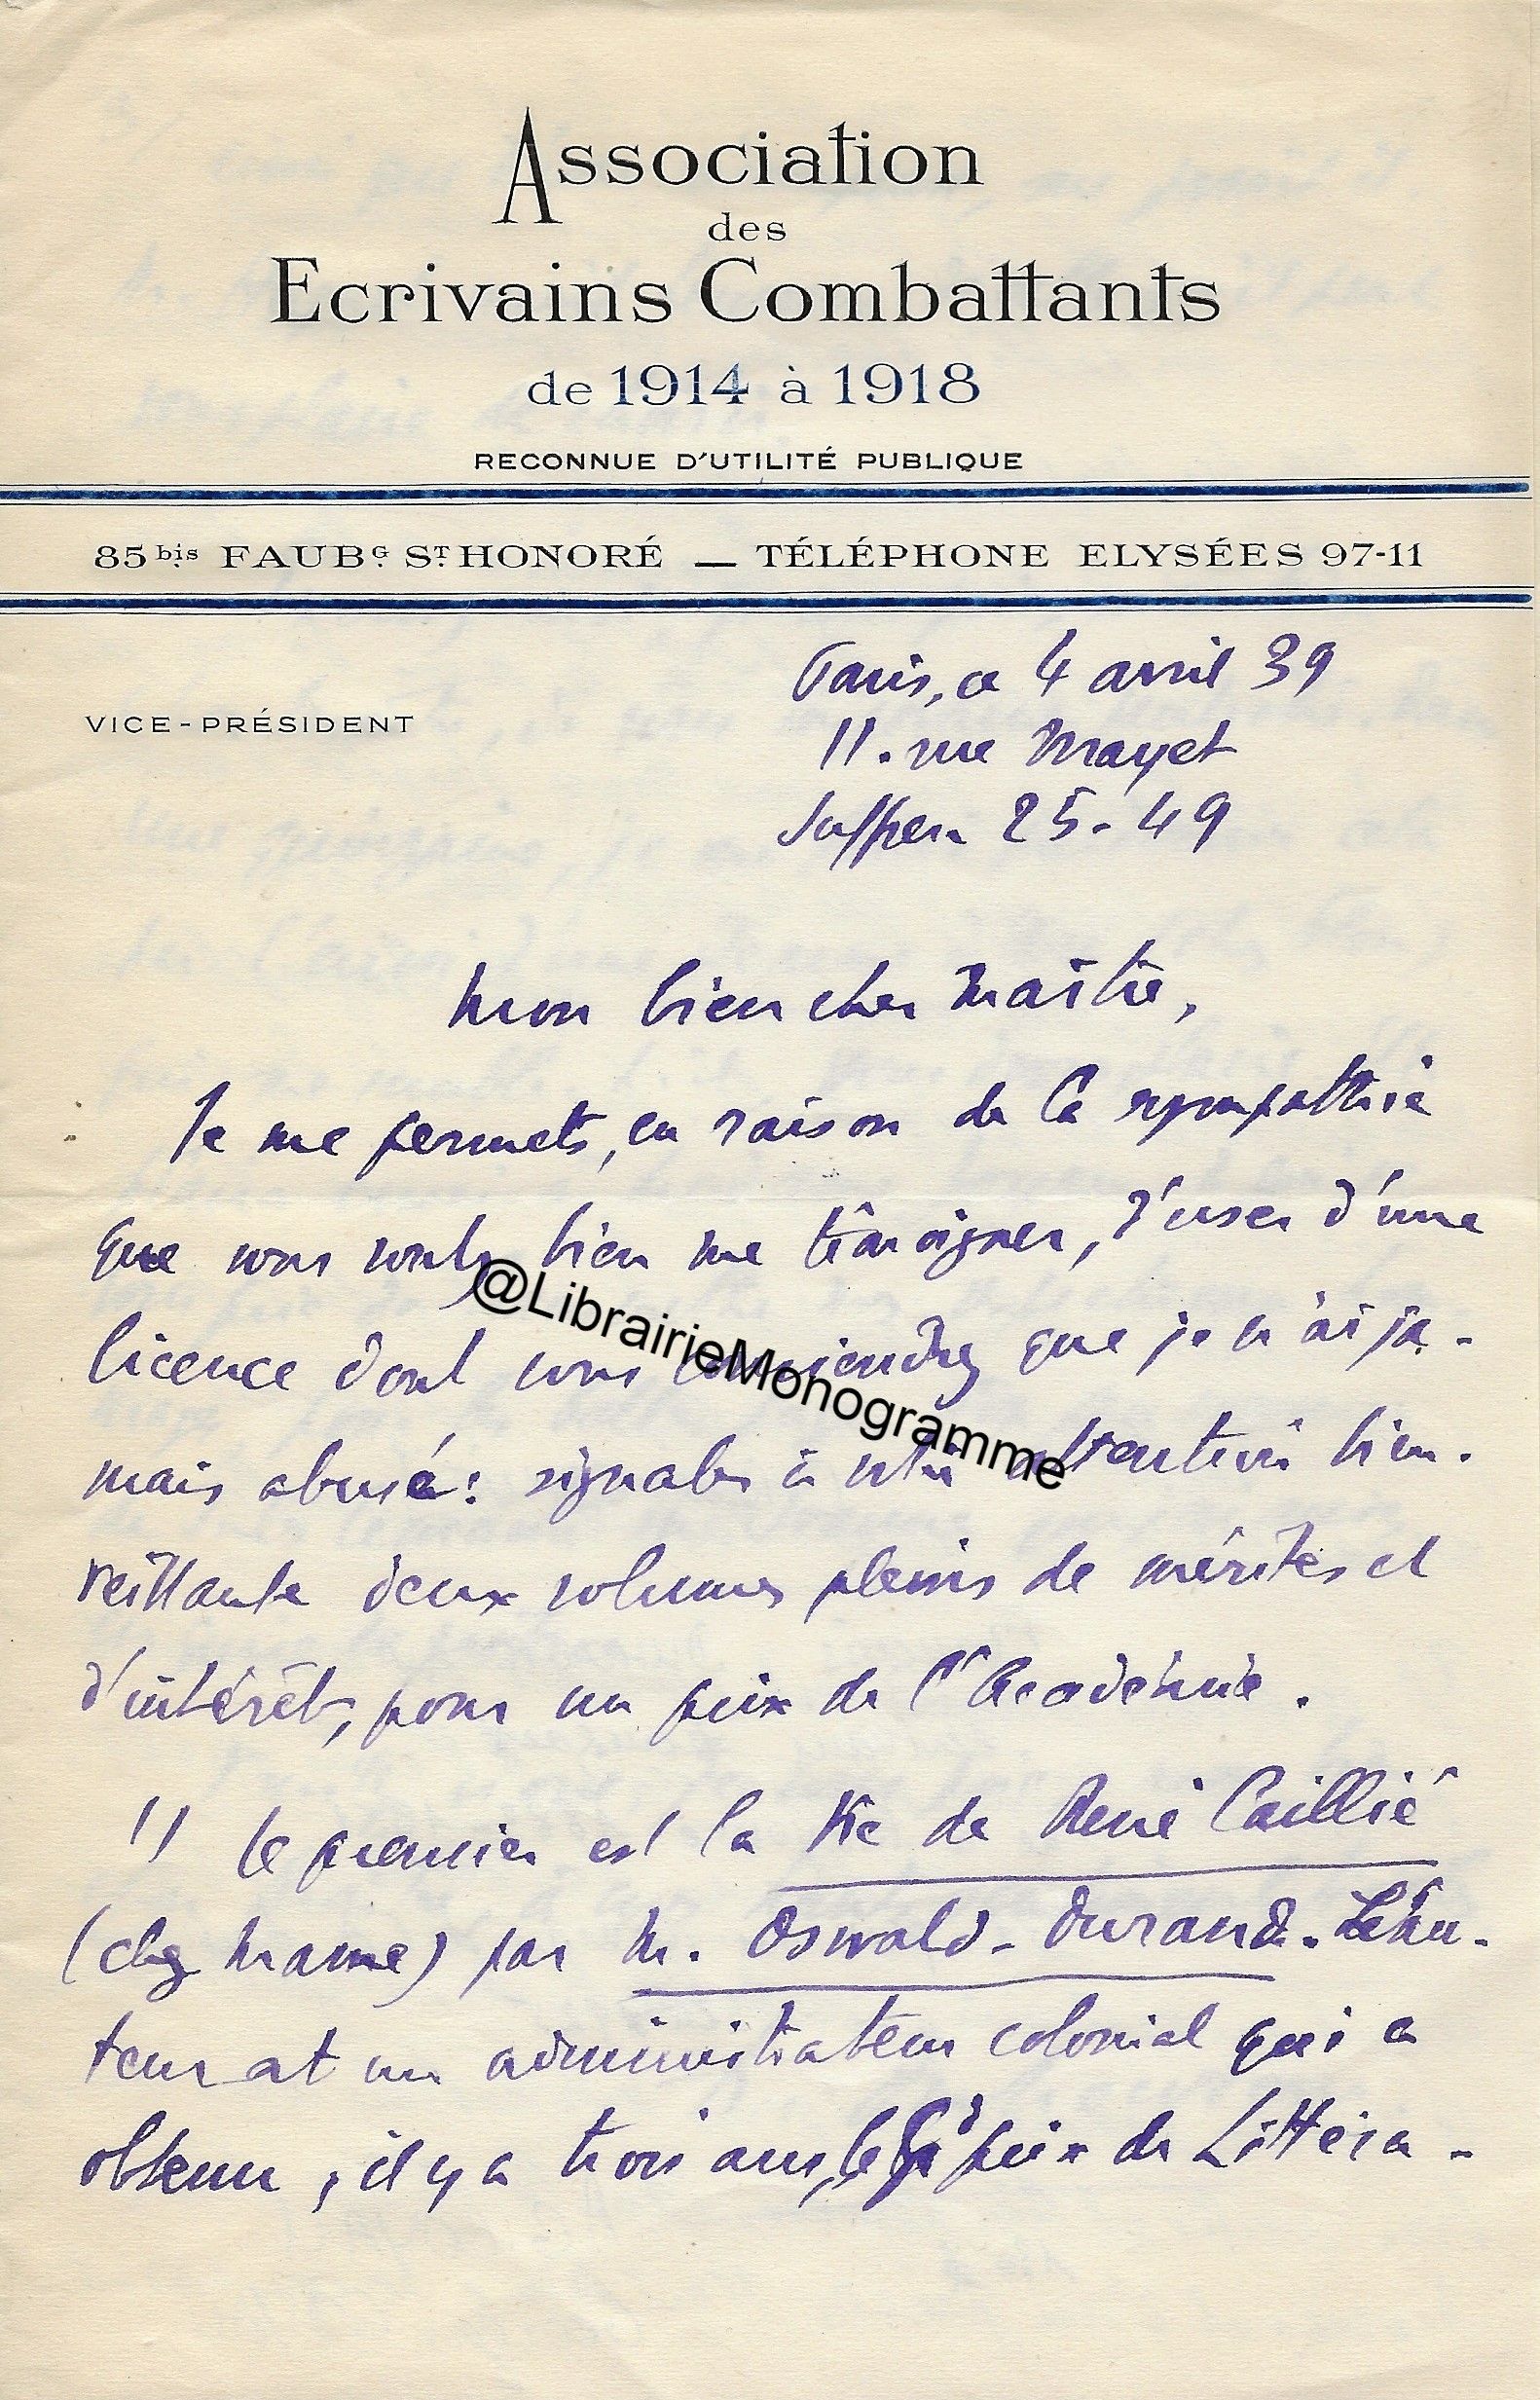 Association
des
Ecrivains Combattants
de 1914 à 1918
RECONNUE D'UTILITÉ PUBLIQUE
85 bis FAUBG ST HONORÉ — TÉLÉPHONE ELYSÉES 97-11
VICE-PRÉSIDENT
Paris, ce 4 avril 39
11. rue Mayet
Suffren 25-49
Mon bien cher Maître,
Je me permets, en raison de la sympathie
que vous voulez bien me témoigner, d'user d'une
licence dont vous conviendrez que je n'ai ja-
mais abusé: signaler à votre attention bien-
veillante deux volumes pleins de mérites et
d'intérêt, pour un prix de l'Académie.
1) le premier est la Vie de René Caillié
(chez Mame) par M. Oswald-Durand. L'au-
teur est un administrateur colonial qui a
obtenu, il y a trois ans, le prix de Littéra-
@LibrairieMonogramme